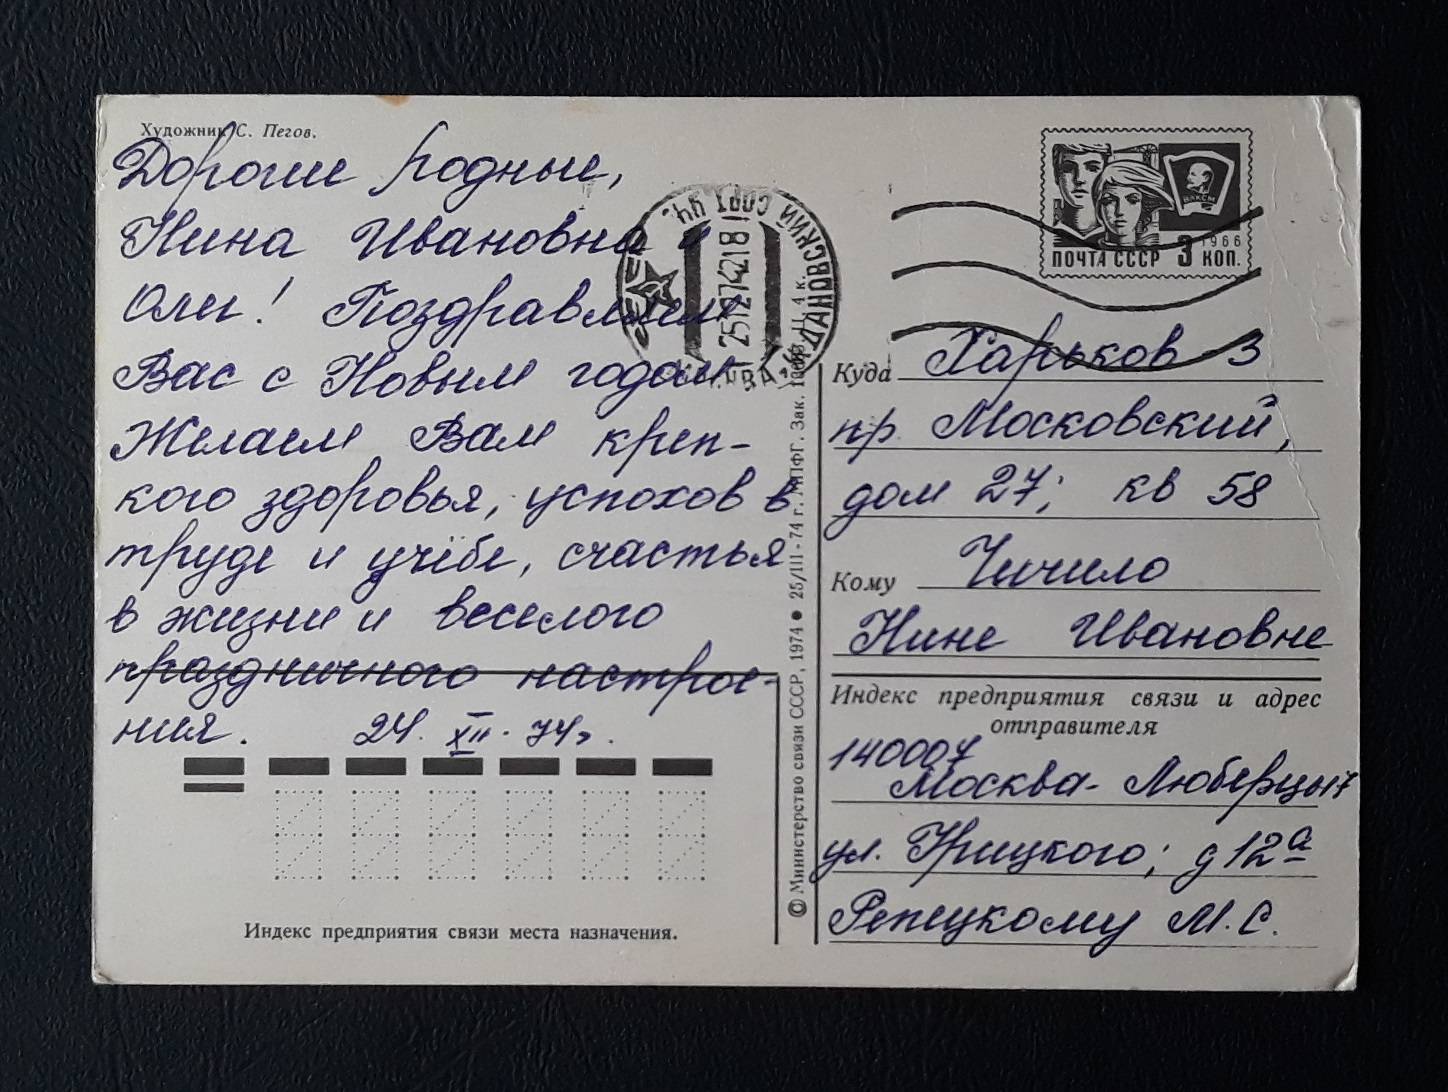 Художник С. Пегов.
Дорогие родные,
Нина Ивановна и
Олег! Поздравляем
Вас с Новым годом
Желаем Вам креп-
кого здоровья, успехов в
труде и учёбе, счастья
в жизни и веселого
праздничного настрое-
ния. 24. XII. 74г.
Индекс предприятия связи места назначения.
© Министерство связи СССР, 1974 ● 25/III-74 г. МПФГ. Зак. Ц. 4 к.
25127421 8
ПОЧТА СССР 3 КОП.
1966
ВЛКСМ
Куда Харьков - 3
пр. Московский,
дом 27; кв 58
Кому Чичило
Нине Ивановне
Индекс предприятия связи и адрес
отправителя
140007
Москва - Люберцы 7
ул. Урицкого; д 12а
Репецкому М. С.